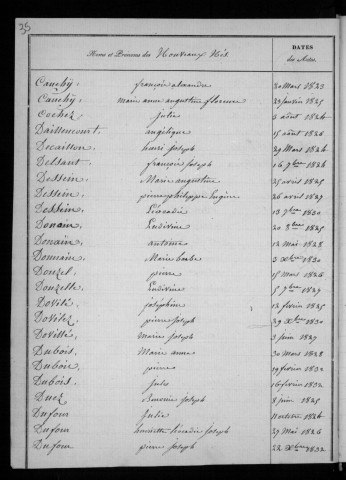 35
Noms et Prénoms des Nouveaux Nés. DATES des Actes.
Cauchy françois alexandre 20 Mars 1823
Cauchy, Marie anne augustine florence 23 janvier 1825
Cochez julie 3 août 1824
Daillencourt, angélique 15 août 1826
Decaillon, henri joseph 29 Mars 1824
Delsaut françois joseph 16 7bre 1824
Dessein, Marie augustine 25 avril 1825
Dessein, pierre philippe Eugène 26 avril 1827
Dessein Léocadie 13 7bre 1830
Donain Ludivine 20 8bre 1825
Donain, antoine 12 Mai 1828
Domain, Marie barbe 3 Xbre 1830
Douzet, pierre 15 Mars 1826
Douzelle, Ludivine 5 7bre 1827
Dovillé, joséphine 12 février 1825
Dovillez pierre joseph 29 Xbre 1830
Dovillé, Marie joseph 3 juin 1827
Dubois, Marie anne 30 Mars 1828
Dubois, pierre 19 février 1832
Dubois, jules 16 février 1832
Duez joseph 8 juin 1825
Dufour Julie 11 octobre 1824
Dufour henriette Léocadie joseph 27 Mai 1826
Dufour, pierre joseph 22 Xbre 1832